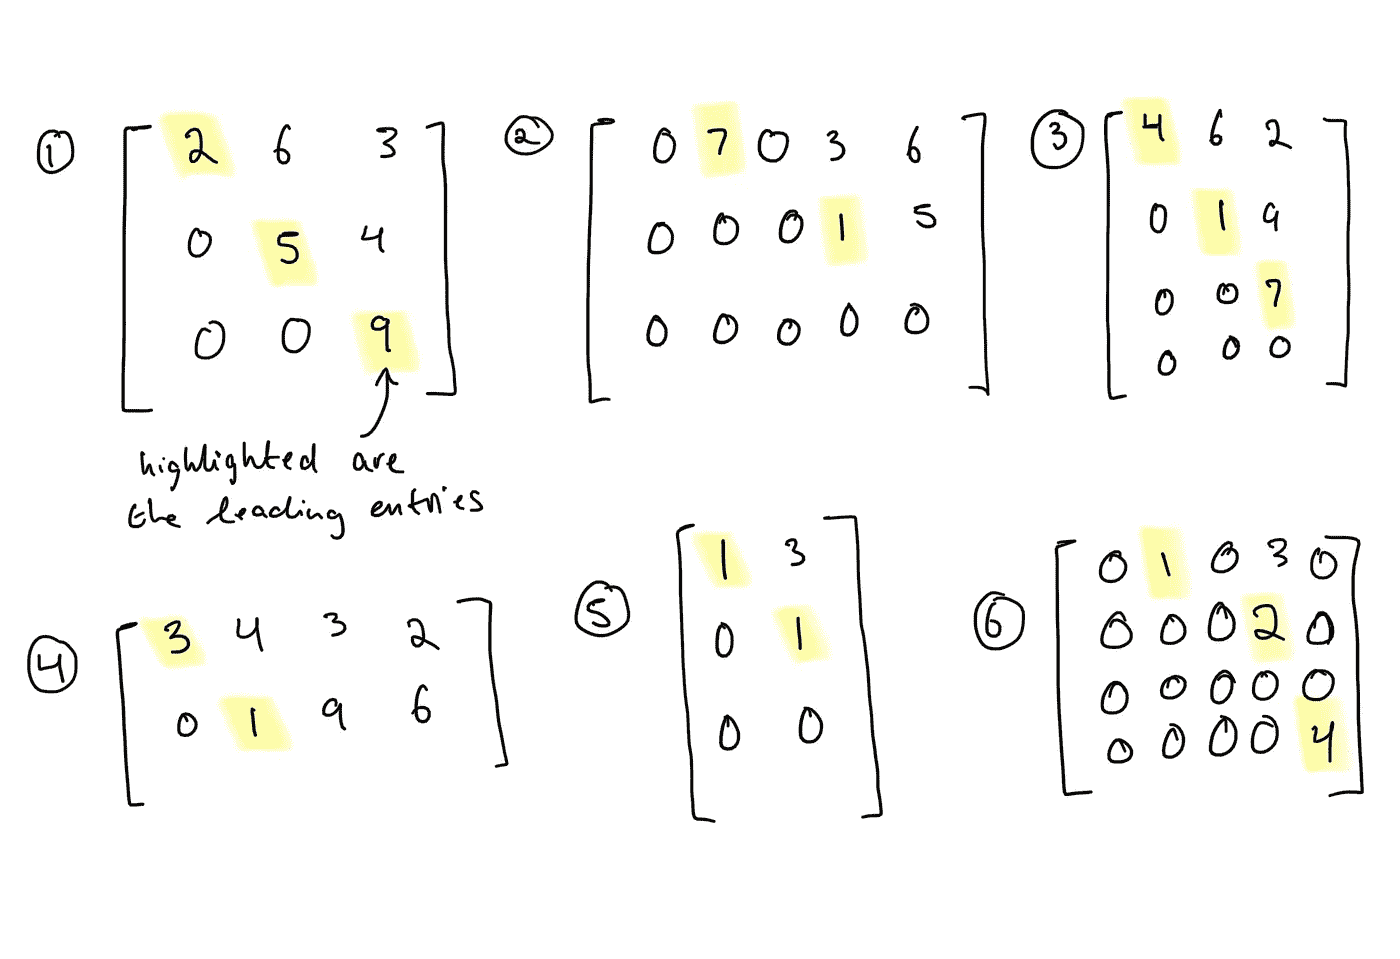 ① 2 6 3
0 5 4
0 0 9
highlighted are
the leading entries
② 0 7 0 3 6
0 0 0 1 5
0 0 0 0 0
③ 4 6 2
0 1 9
0 0 7
0 0 0
④ 3 4 3 2
0 1 9 6
⑤ 1 3
0 1
0 0
⑥ 0 1 0 3 0
0 0 0 2 0
0 0 0 0 0
0 0 0 0 4